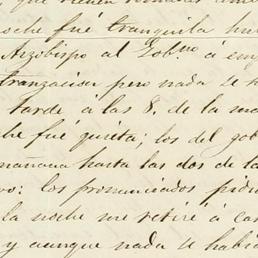 que vienen
oche fué tranquila hu
Arzobispo al Gob.no á em
tranzacion pero nada se
tarde á las 8. de la ma
he fué quieta; los del gob
mañana hasta las dos de la
vo: los pronunciados pidi
la noche me retiré á cas
y aunque nada se habia